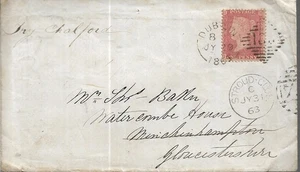 Try Chalford
DUBLIN
JY
186
STROUD
C
JY 31
63
Mr. Thos. Baker
Watercombe House
Minchinhampton
Gloucestershire